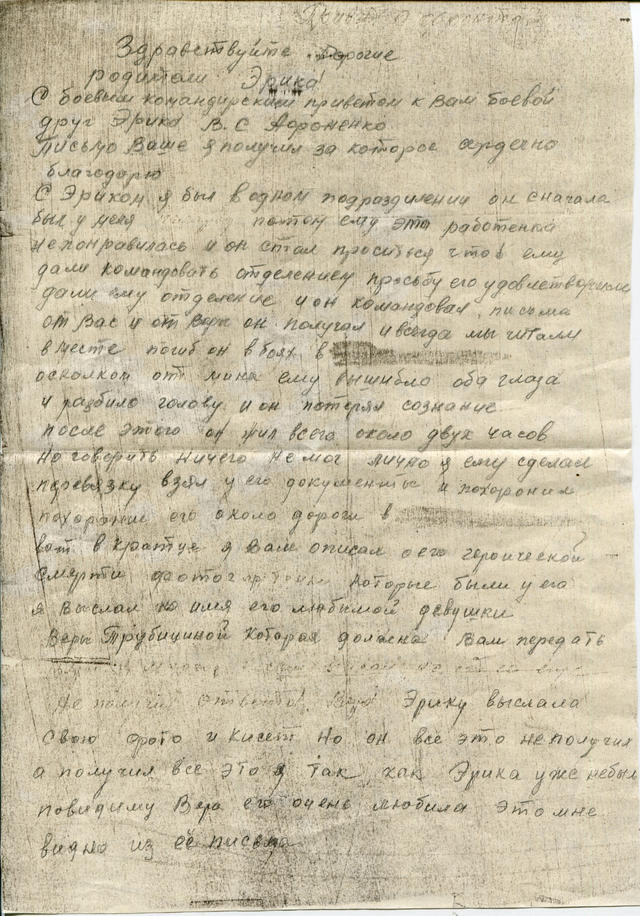 Здравствуйте Дорогие
родители Эрика!
С боевым командирским приветом к Вам боевой
друг Эрика В. С Дороненко
Письмо Ваше я получил за которое сердечно
благодарю
С Эриком я был в одном подразделении он сначала
был у меня потом ему эта работенка
непонравилась и он стал проситься чтоб ему
дали командовать отделением просьбу его удовлетворили
дали ему отделение и он командовал, письма
от Вас и от Веры он получал и всегда мы читали
вместе погиб он в боях в
осколком от мины ему вышибло оба глаза
и разбило голову и он потерял сознание
после этого он жил всего около двух часов
но говорить ничего не мог лично я ему сделал
перевязку взял у его документы и похоронил
похоронил его около дороги в
вот в кратце я Вам описал о его героической
смерти фотографии которые были у его
я выслал на имя его любимой девушки
Веры Трубициной которая должна Вам передать
Не получил ответа. Вера Эрику выслала
свою фото и кисет но он все это неполучил
а получил все это я так как Эрика уже небыл
повидиму Вера его очень любила это мне
видно из её письма